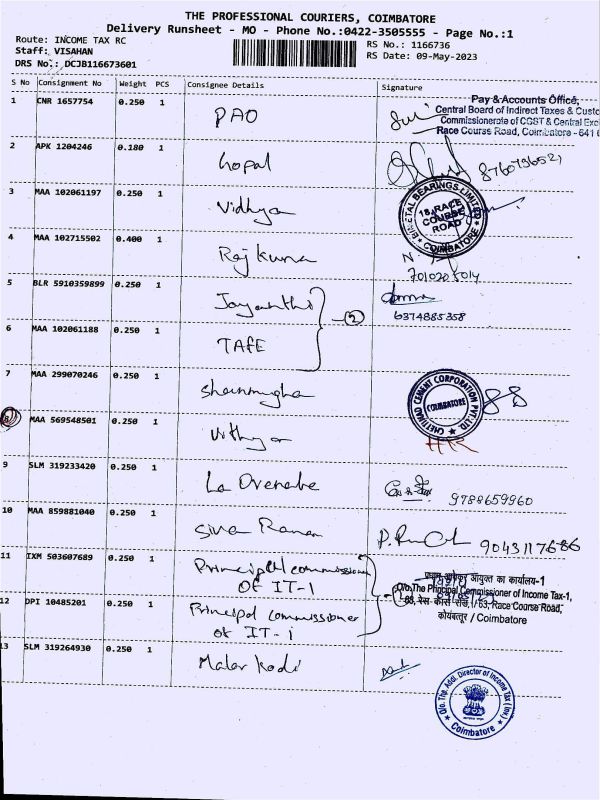 THE PROFESSIONAL COURIERS, COIMBATORE
Delivery Runsheet - MO - Phone No.:0422-3505555 - Page No.:1
Route: INCOME TAX RC
RS No.: 1166736
Staff: VISAHAN
RS Date: 09-May-2023
DRS No.: DCJB116673601
S No Consignment No Weight PCS Consignee Details Signature
1 CNR 1657754 0.250 1 PAO
Pay & Accounts Office,
Central Board of Indirect Taxes & Custo
Commissionerate of CGST & Central Exc
Race Course Road, Coimbatore - 641
2 APK 1204246 0.180 1 Gopal
3 MAA 102061197 0.250 1 Vidhya
BIMETAL BEARINGS LIMITED
18, RACE
COURSE
ROAD
COIMBATORE
4 MAA 102715502 0.400 1 Raj kumar
5 BLR 5910359899 0.250 1 Jayanthi
6374885358
2
6 MAA 102061188 0.250 1 TAFE
7 MAA 299070246 0.250 1 Shanmugha
CHETTINAD CEMENT CORPORATION PVT. LTD.
COIMBATORE
8 MAA 569548501 0.250 1 Vithya
9 SLM 319233420 0.250 1
9788659960
10 MAA 859881040 0.250 1 Siva Raman
9043117686
11 IXM 503607689 0.250 1 Principal commissioner
of IT-1
आयुक्त का कार्यालय-1
O/o.The Principal Commissioner of Income Tax-1,
63, रेस कोर्स रोड, / 63, Race Course Road,
कोयंबत्तूर / Coimbatore
12 DPI 10485201 0.250 1 Principal commissioner
of IT-1
13 SLM 319264930 0.250 1 Malar kodi
O/o. The Addl. Director of Income Tax (Inv)
Coimbatore